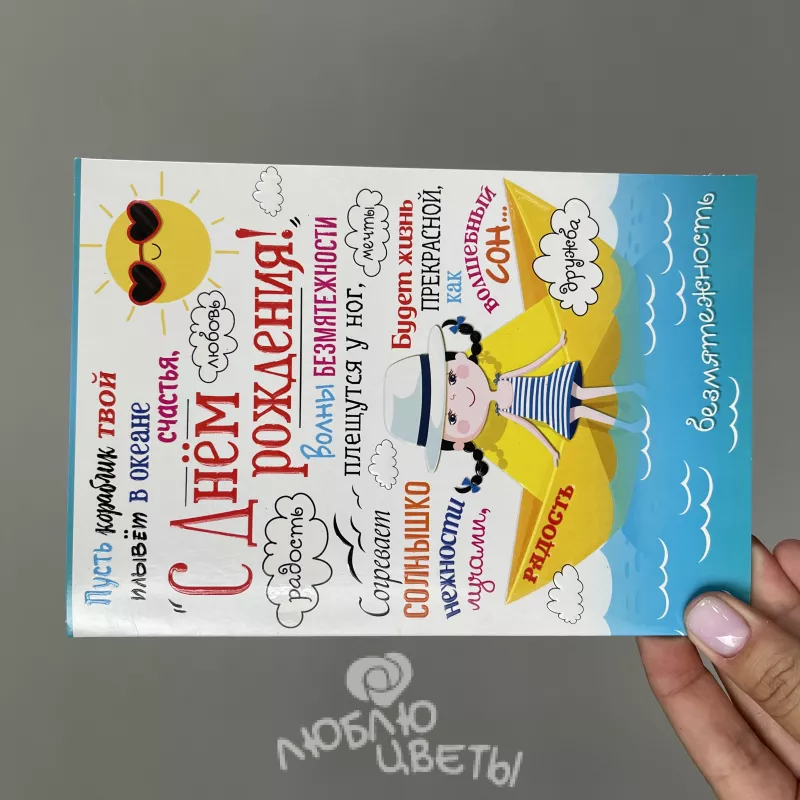 Пусть кораблик твой
плывёт в океане
счастья,
любовь
"С Днём
рождения!"
радость
Волны БЕЗМЯТЕЖНОСТИ
плещутся у ног,
мечты
Согревает
СОЛНЫШКО
нежности
лучами,
Будет жизнь
ПРЕКРАСНОЙ,
как
ВОЛШЕБНЫЙ
СОН...
дружба
РАДОСТЬ
безмятежность
ЛЮБЛЮ
ЦВЕТЫ